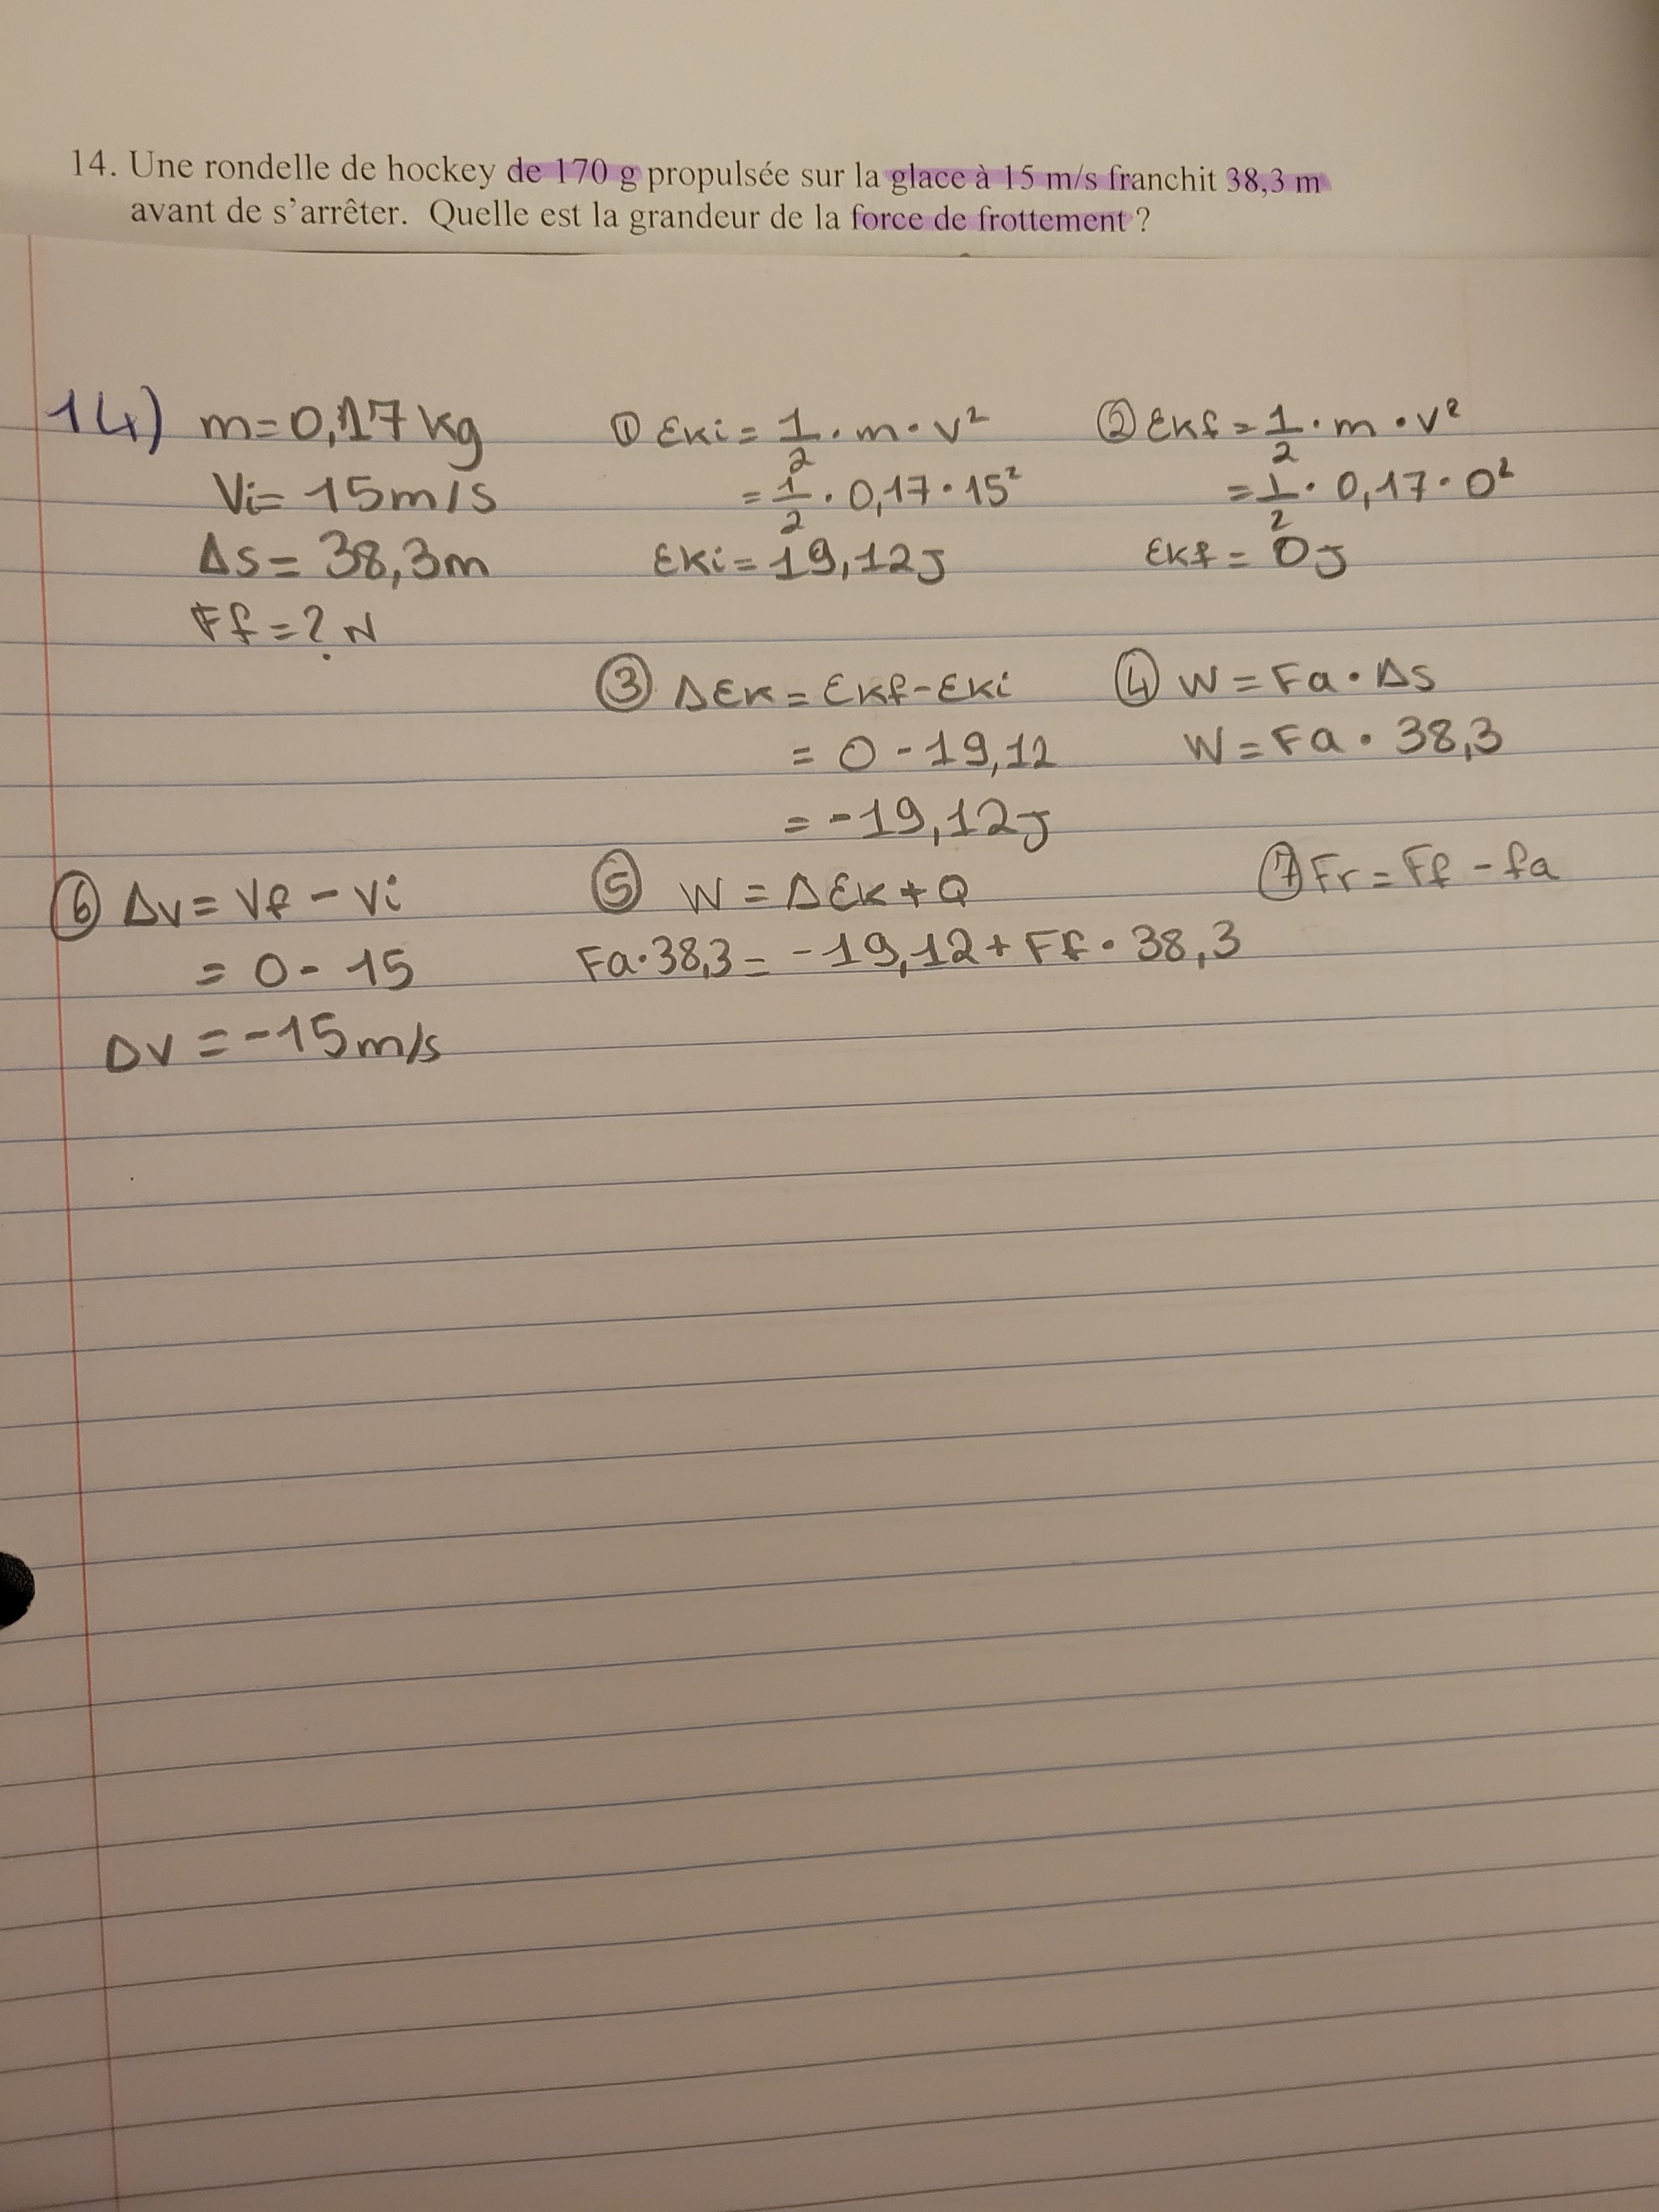 14. Une rondelle de hockey de 170 g propulsée sur la glace à 15 m/s franchit 38,3 m
avant de s'arrêter. Quelle est la grandeur de la force de frottement ?
14) m = 0,17 kg
Vi = 15 m/s
Δs = 38,3 m
Ff = ? N
① Eki = 1/2 · m · v²
= 1/2 · 0,17 · 15²
Eki = 19,12 J
② Ekf = 1/2 · m · v²
= 1/2 · 0,17 · 0²
Ekf = 0 J
③ ΔEk = Ekf - Eki
= 0 - 19,12
= -19,12 J
④ W = Fa · Δs
W = Fa · 38,3
⑤ W = ΔEk + Q
Fa · 38,3 = -19,12 + Ff · 38,3
⑥ Δv = Vf - Vi
= 0 - 15
Δv = -15 m/s
⑦ Fr = Ff - fa